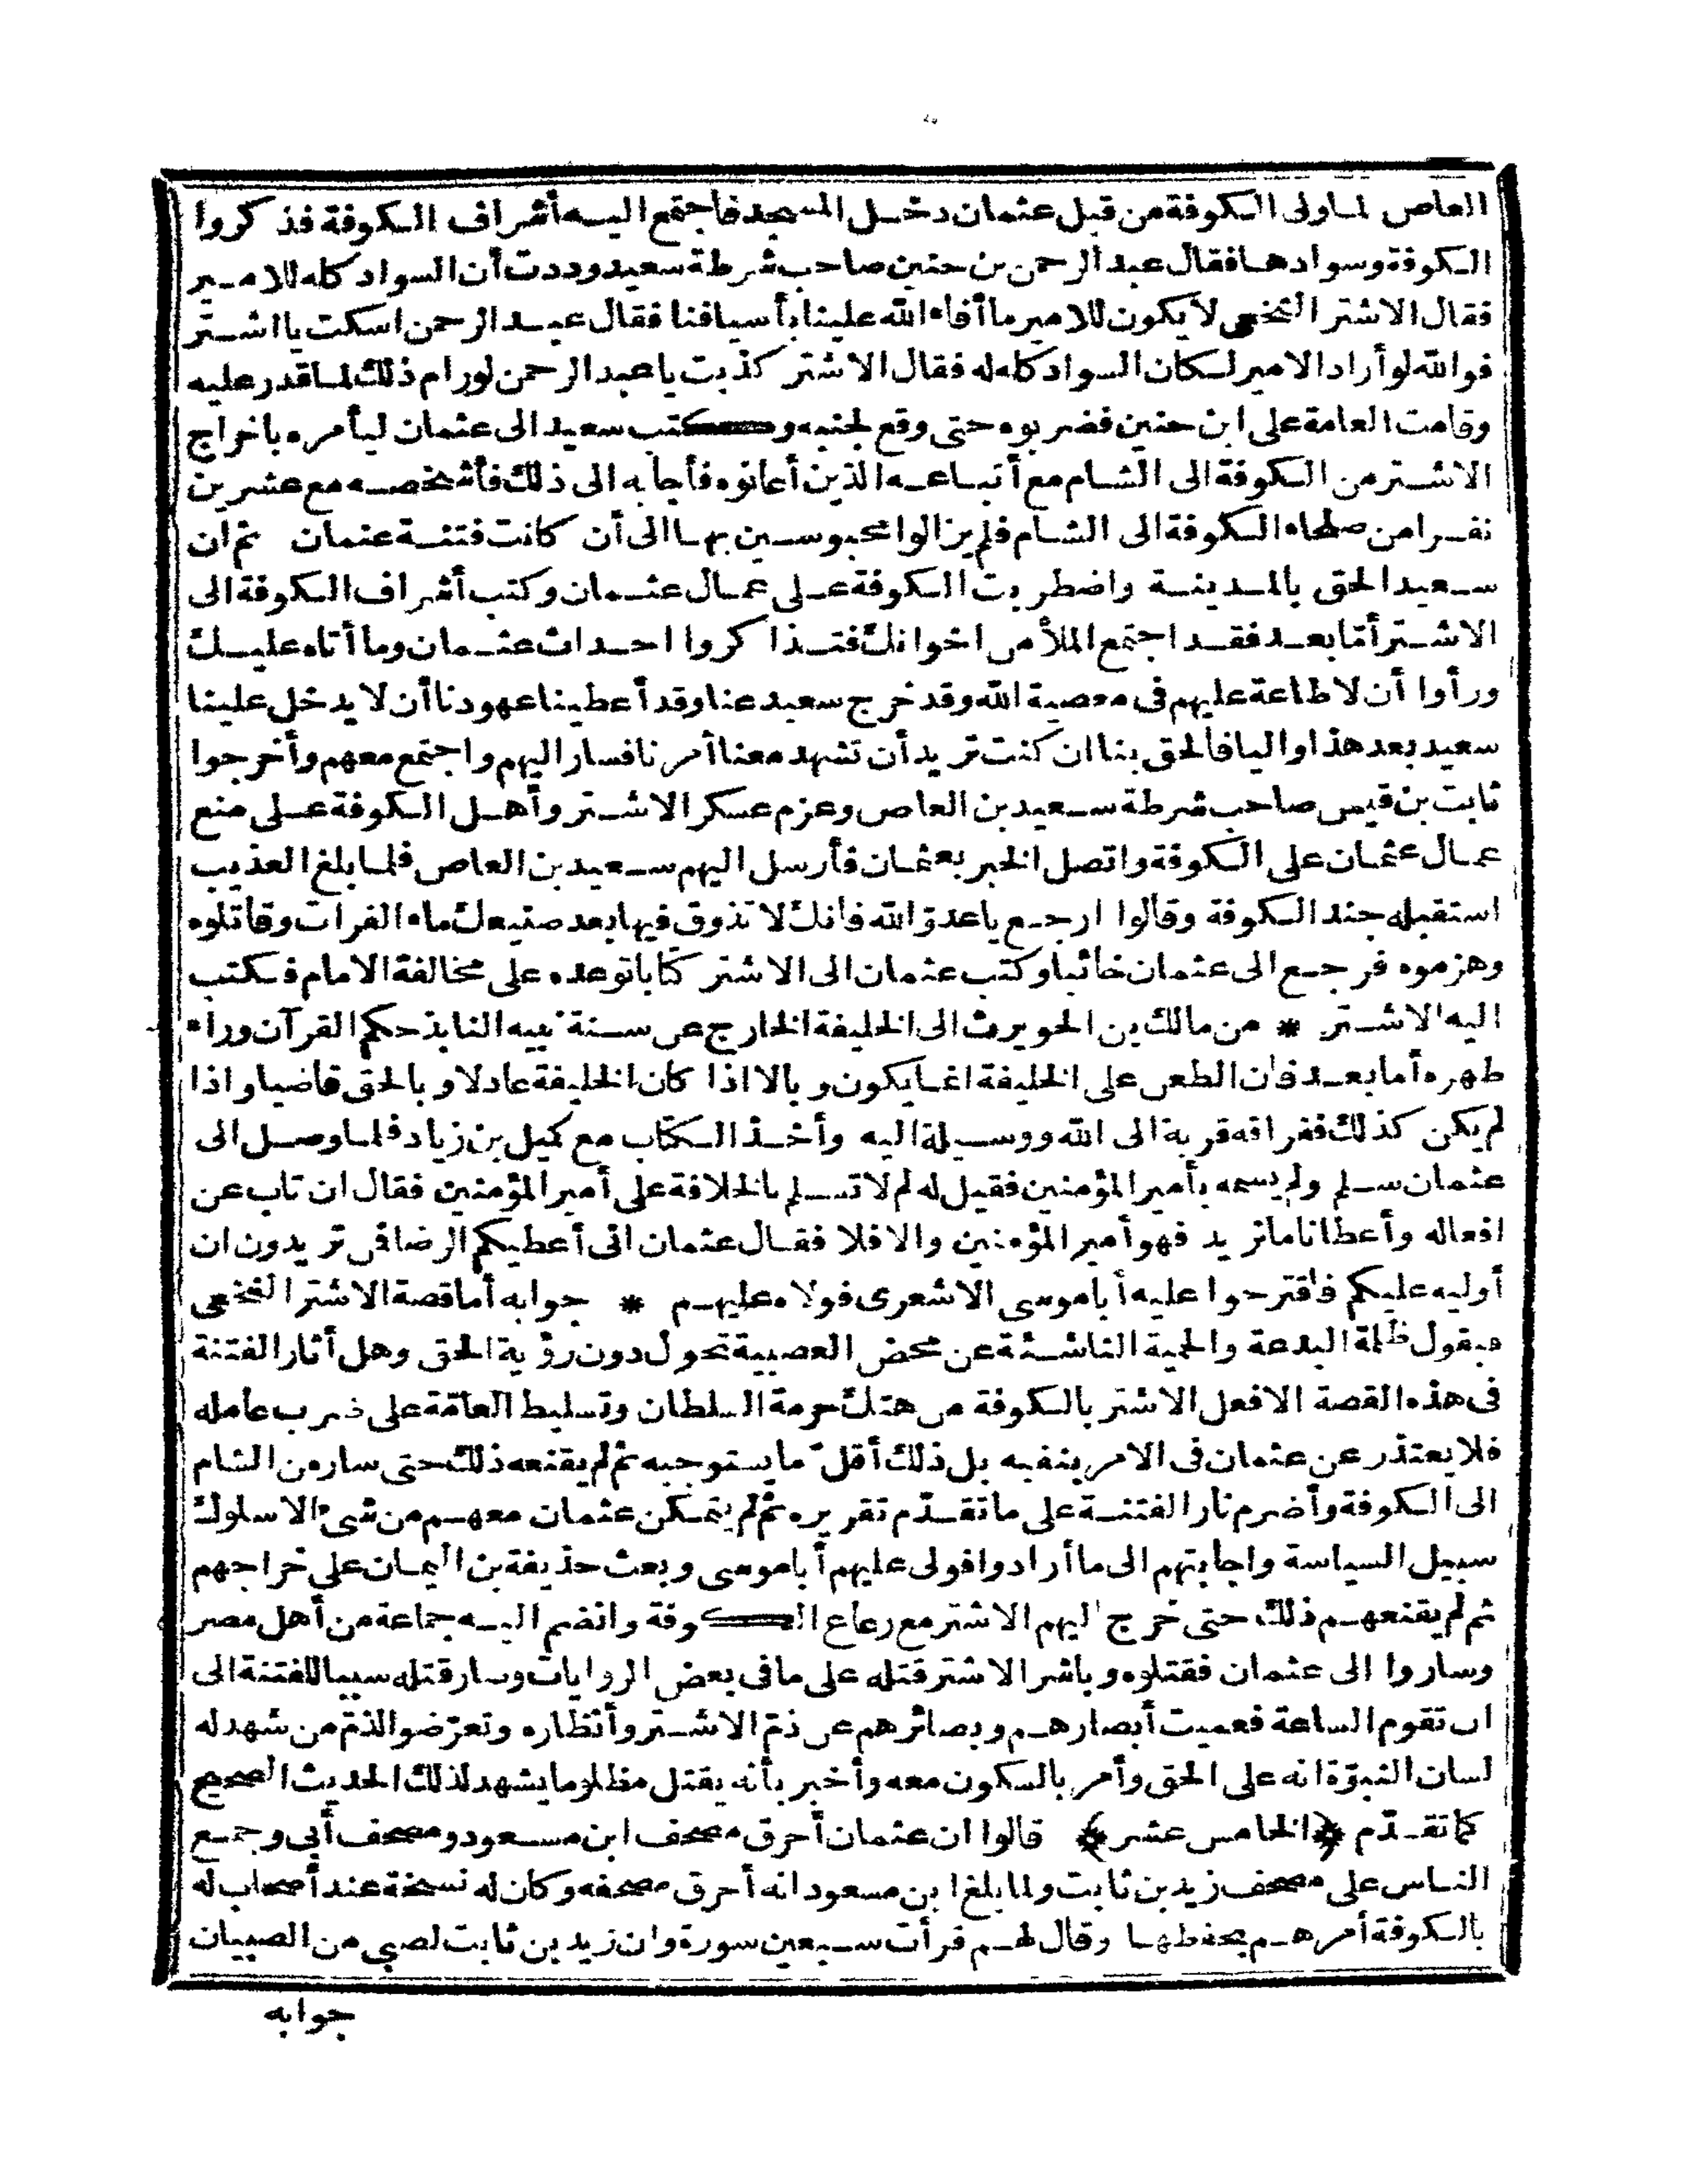 العاص لما ولى الكوفة من قبل عثمان دخل المسجد فاجتمع اليه أشراف الكوفة فذكروا
الكوفة وسوادها فقال عبد الرحمن بن حنين صاحب شرطة سعيد وددت أن السواد كله للامير
فقال الاشتر النخعى لا يكون للامير ما أفاء الله علينا بأسيافنا فقال عبد الرحمن اسكت يا اشتر
فوالله لو أراد الامير لكان السواد كله له فقال الاشتر كذبت يا عبد الرحمن لو رام ذلك لما قدر عليه
وقامت العامة على ابن حنين فضربوه حتى وقع لجنبه وكتب سعيد الى عثمان ليأمره باخراج
الاشتر من الكوفة الى الشام مع أتباعه الذين أعانوه فأجابه الى ذلك فأشخصه مع عشرين
نفرا من صلحاء الكوفة الى الشام فلم يزالوا محبوسين بها الى أن كانت فتنة عثمان ثم ان
سعيدا لحق بالمدينة واضطربت الكوفة على عمال عثمان وكتب أشراف الكوفة الى
الاشتر أما بعد فقد اجتمع الملأ من اخوانك فتذاكروا احداث عثمان وما أتاه عليك
ورأوا أن لا طاعة عليهم فى معصية الله وقد خرج سعيد عنا وقد أعطينا عهودنا أن لا يدخل علينا
سعيد بعد هذا واليا فالحق بنا ان كنت تريد أن تشهد معنا أمرنا فسار اليهم واجتمع معهم وأخرجوا
ثابت بن قيس صاحب شرطة سعيد بن العاص وعزم عسكر الاشتر وأهل الكوفة على منع
عمال عثمان على الكوفة واتصل الخبر بعثمان فأرسل اليهم سعيد بن العاص فلما بلغ العذيب
استقبله جند الكوفة وقالوا ارجع يا عدو الله فانك لا تذوق فيها بعد صنيعك ماء الفرات وقاتلوه
وهزموه فرجع الى عثمان خائبا وكتب عثمان الى الاشتر كتابا توعده على مخالفة الامام فكتب
اليه الاشتر * من مالك بن الحويرث الى الخليفة الخارج عن سنة نبيه النابذ حكم القرآن وراء
ظهره أما بعد فان الطعن على الخليفة انما يكون وبالا اذا كان الخليفة عادلا وبالحق قاضيا واذا
لم يكن كذلك ففراقه قربة الى الله ووسيلة اليه وأخذ الكتاب مع كميل بن زياد فلما وصل الى
عثمان سلم ولم يسمه بأمير المؤمنين فقيل له لم لا تسلم بالخلافة على أمير المؤمنين فقال ان تاب عن
افعاله وأعطانا ما نريد فهو أمير المؤمنين والا فلا فقال عثمان انى أعطيكم الرضا فمن تريدون ان
أوليه عليكم فاقترحوا عليه أبا موسى الاشعرى فولاه عليهم * جوابه أما قصة الاشتر النخعى
فيقول ظلمة البدعة والحمية الناشئة عن محض العصبية تحول دون رؤية الحق وهل أثار الفتنة
فى هذه القصة الا فعل الاشتر بالكوفة من هتك حرمة السلطان وتسليط العامة على ضرب عامله
فلا يعتذر عن عثمان فى الامر بنفيه بل ذلك أقل ما يستوجبه ثم لم يقنعه ذلك حتى سار من الشام
الى الكوفة وأضرم نار الفتنة على ما تقدم تقريره ثم لم يتمكن عثمان معهم من شىء الا سلوك
سبيل السياسة واجابتهم الى ما أرادوا فولى عليهم أبا موسى وبعث حذيفة بن اليمان على خراجهم
ثم لم يقنعهم ذلك حتى خرج اليهم الاشتر مع رعاع الكوفة وانضم اليه جماعة من أهل مصر
وساروا الى عثمان فقتلوه وباشر الاشتر قتله على ما فى بعض الروايات وصار قتله سببا للفتنة الى
ان تقوم الساعة فعميت أبصارهم وبصائرهم عن ذم الاشتر وأنظاره وتعرضوا لذم من شهد له
لسان النبوة انه على الحق وأمر بالكون معه وأخبر بأنه يقتل مظلوما يشهد لذلك الحديث الصحيح
كما تقدم ﴿الخامس عشر﴾ قالوا ان عثمان أحرق مصحف ابن مسعود ومصحف أبى وجمع
الناس على مصحف زيد بن ثابت ولما بلغ ابن مسعود انه أحرق مصحفه وكان له نسخة عند أصحاب له
بالكوفة أمرهم بحفظها وقال لهم قرأت سبعين سورة وان زيد بن ثابت لصبى من الصبيان
جوابه